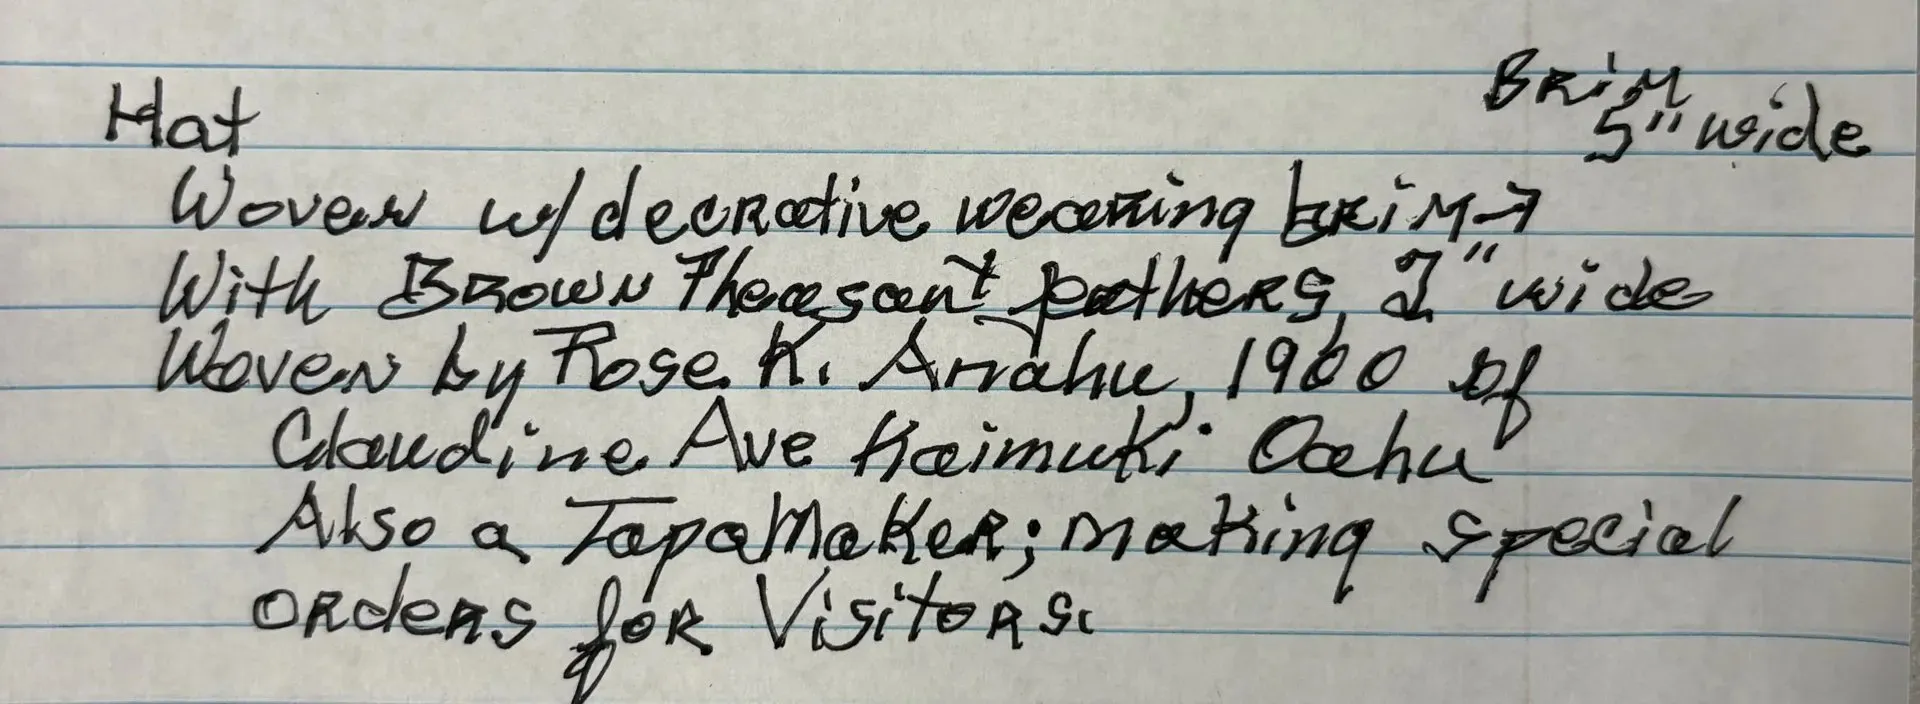 Hat
Brim
5" wide
Woven w/ decrative weaving brim →
With Brown Pheasant feathers, 2" wide
Woven by Rose K. 1960 of
Claudine Ave Kaimuki Oahu
Also a Tapa Maker; making special
orders for Visitors.